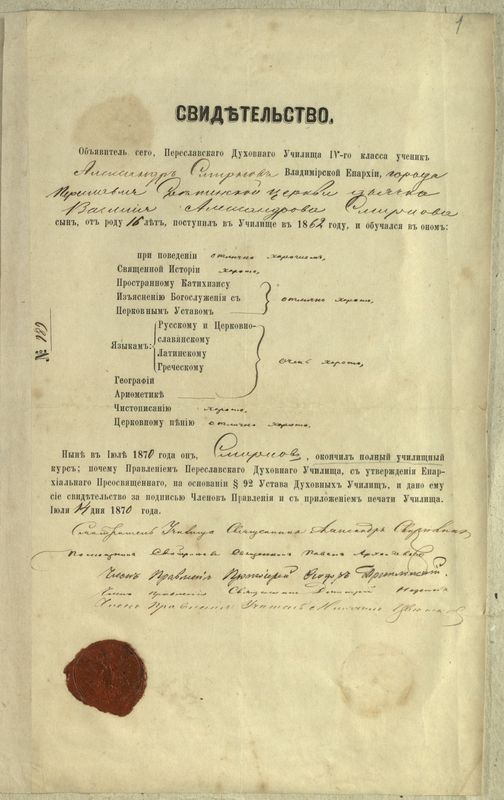 1
СВИДѢТЕЛЬСТВО.
Объявитель сего, Переславскаго Духовнаго Училища IV-го класса ученикъ
Александръ Смирновъ Владимірской Епархіи, города
церкви дьячка
Василія Александрова Смирнова
сынъ, отъ роду 16 лѣтъ, поступилъ въ Училище въ 1862 году, и обучался въ ономъ:
при поведеніи отлично хорошемъ,
Священной Исторіи хорошо,
Пространному Катихизису
Изъясненію Богослуженія съ отлично хорошо,
Церковнымъ Уставомъ
Русскому и Церковно-
славянскому
Языкамъ:
Латинскому
Греческому очень хорошо,
Географіи
Ариѳметикѣ
Чистописанію хорошо.
Церковному пѣнію отлично хорошо.
№ 189
Нынѣ въ Іюлѣ 1870 года онъ, Смирновъ, окончилъ полный училищный
курсъ; почему Правленіемъ Переславскаго Духовнаго Училища, съ утвержденія Епар-
хіальнаго Преосвященнаго, на основаніи § 92 Устава Духовныхъ Училищъ, и дано ему
сіе свидѣтельство за подписью Членовъ Правленія и съ приложеніемъ печати Училища.
Іюля 14 дня 1870 года.
Смотритель Училища Священникъ Александръ
Помощникъ Смотрителя Священникъ Павелъ
Членъ Правленія Протоіерей Ѳеодоръ
Членъ правленія Священникъ Дмитрій
Членъ Правленія Учитель